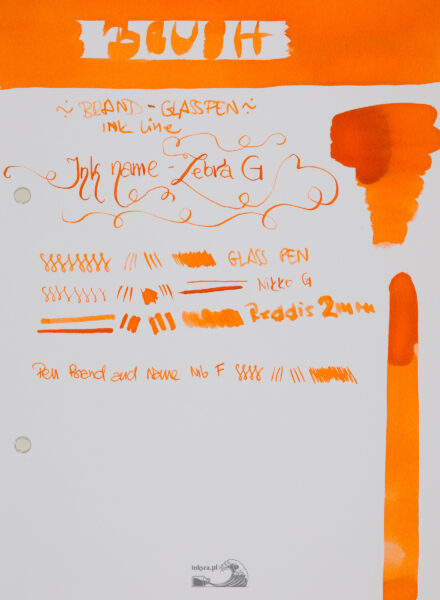 ~ BRAND - GLASSPEN ~
INK Line
Ink name - Zebra G
GLASS PEN
Nikko G
Reddis 2mm
Pen Brand and Name Mb F